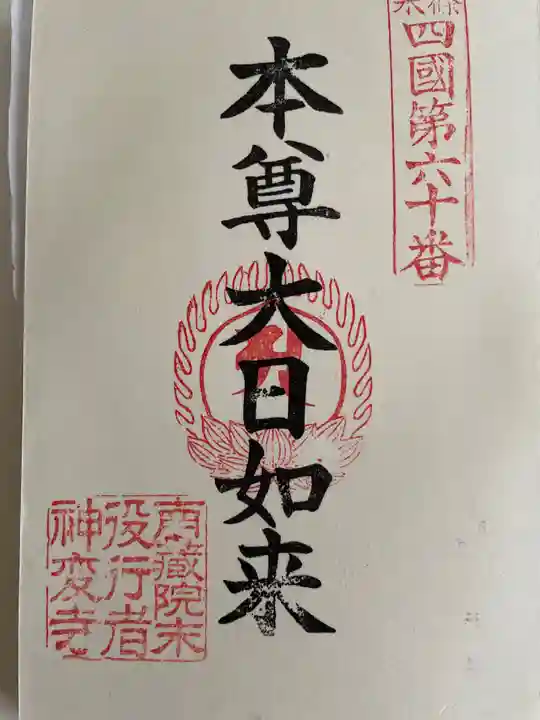 四國第六十番
本尊大日如来
蔵院末
役行者
神変寺